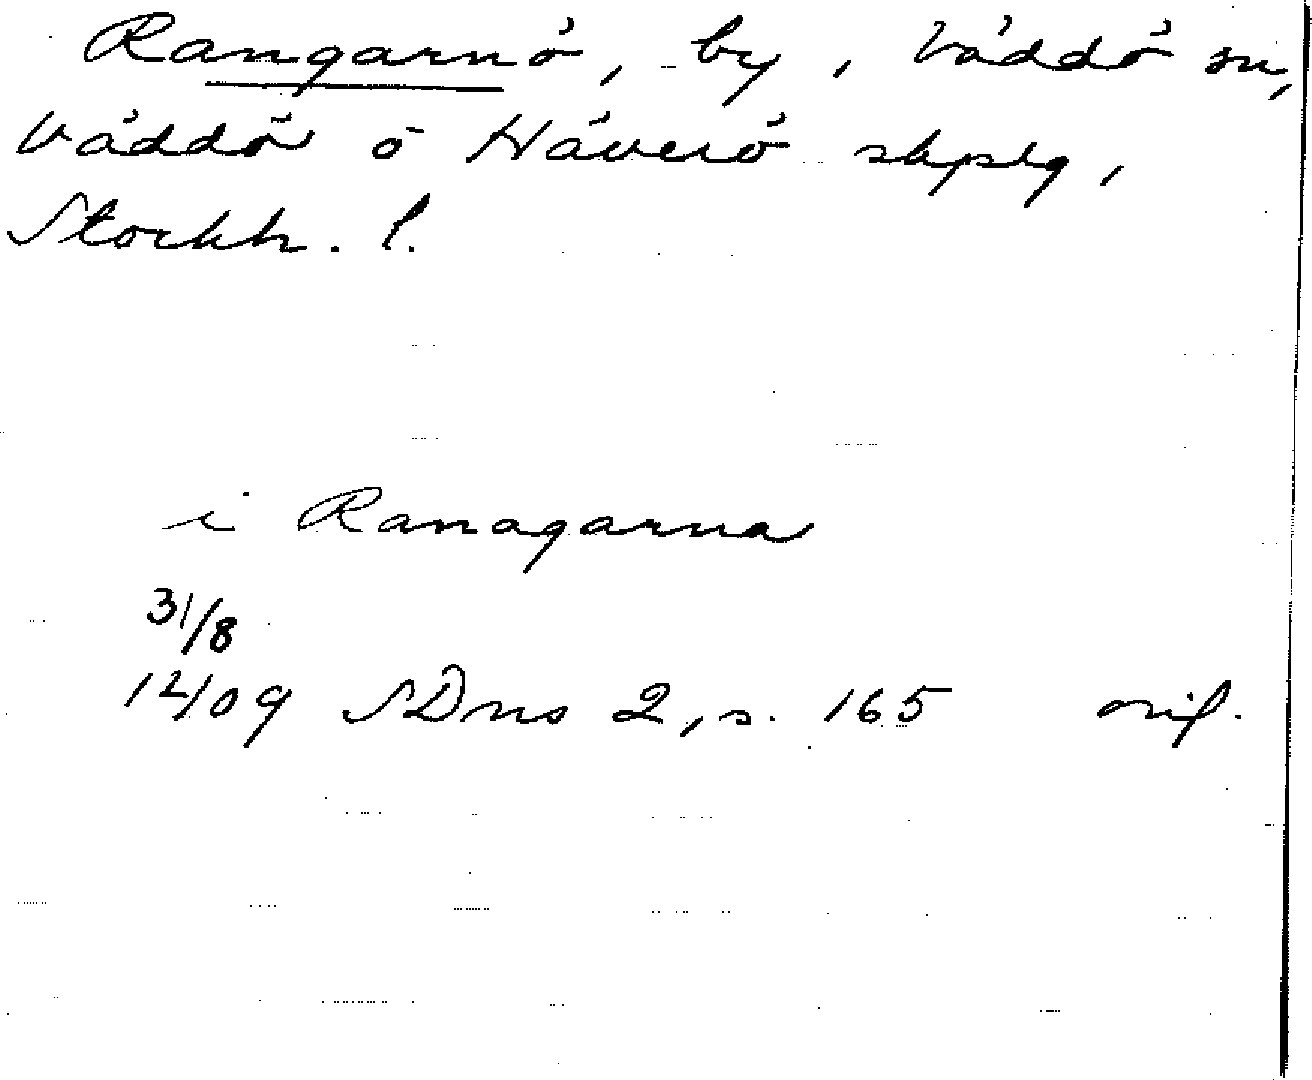 Rangarnö, by, Väddö sn,
Väddö o Häverö skpslg,
Stockh. l.
i Ranagarna
31/8
1409 SDns 2, s. 165 orig.